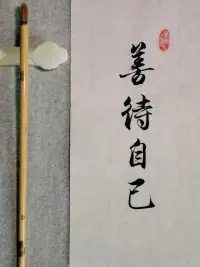 善待自己